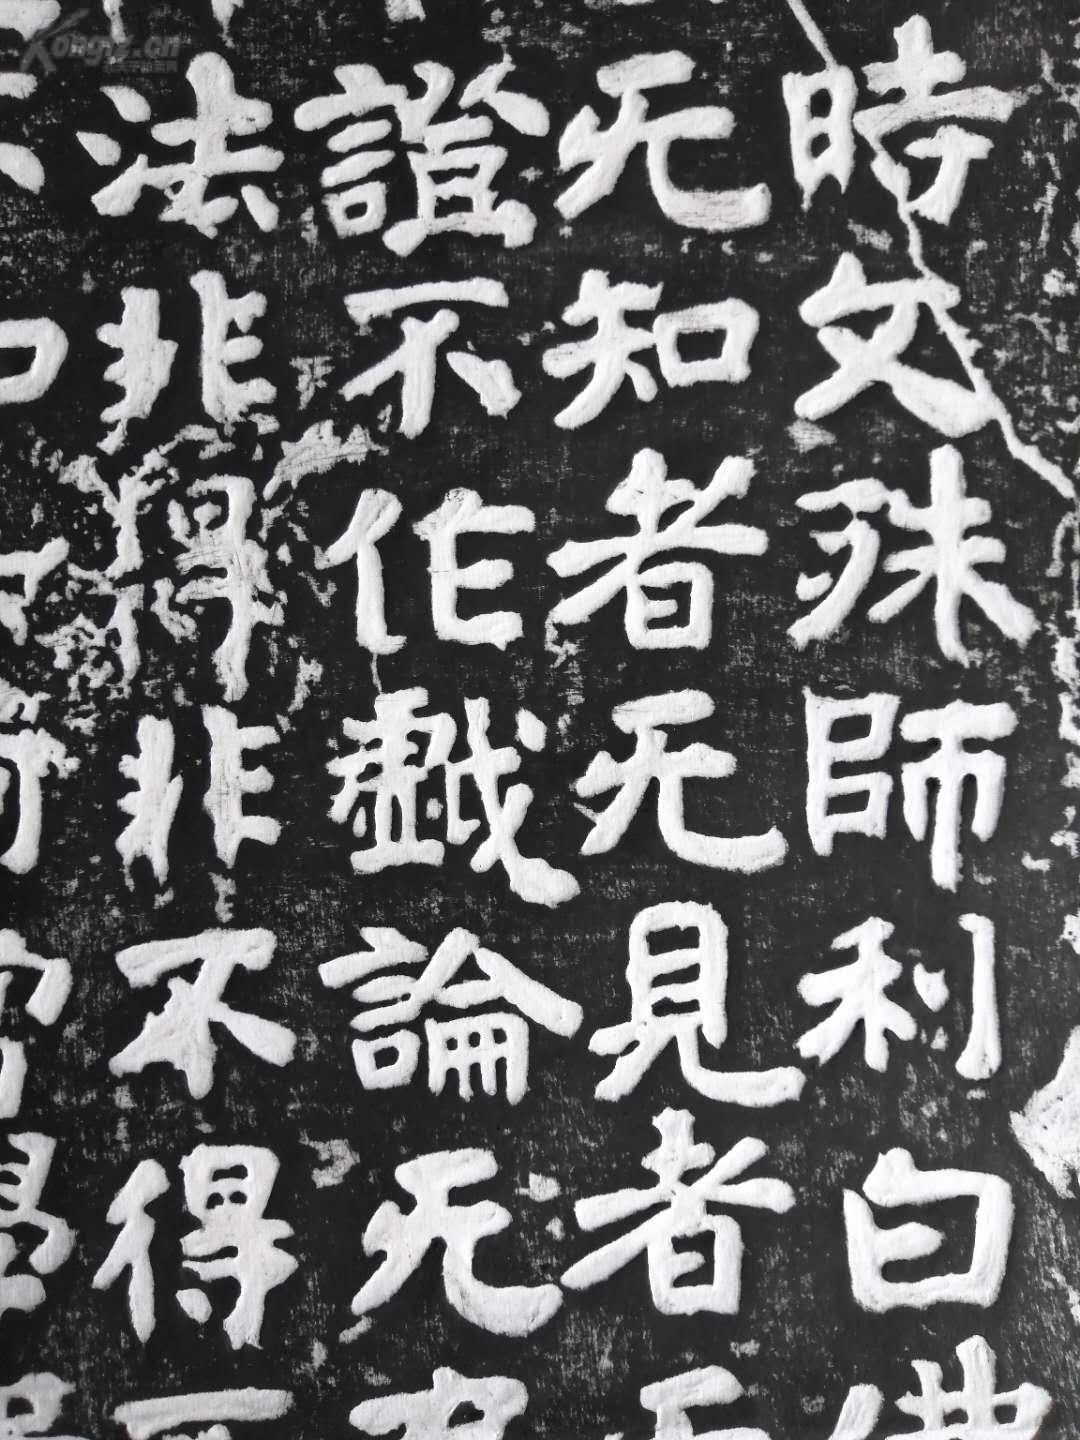 時文殊師利白佛
无知者无見者无
諡不作戱論无
法非得非不得
Kongfz.cn